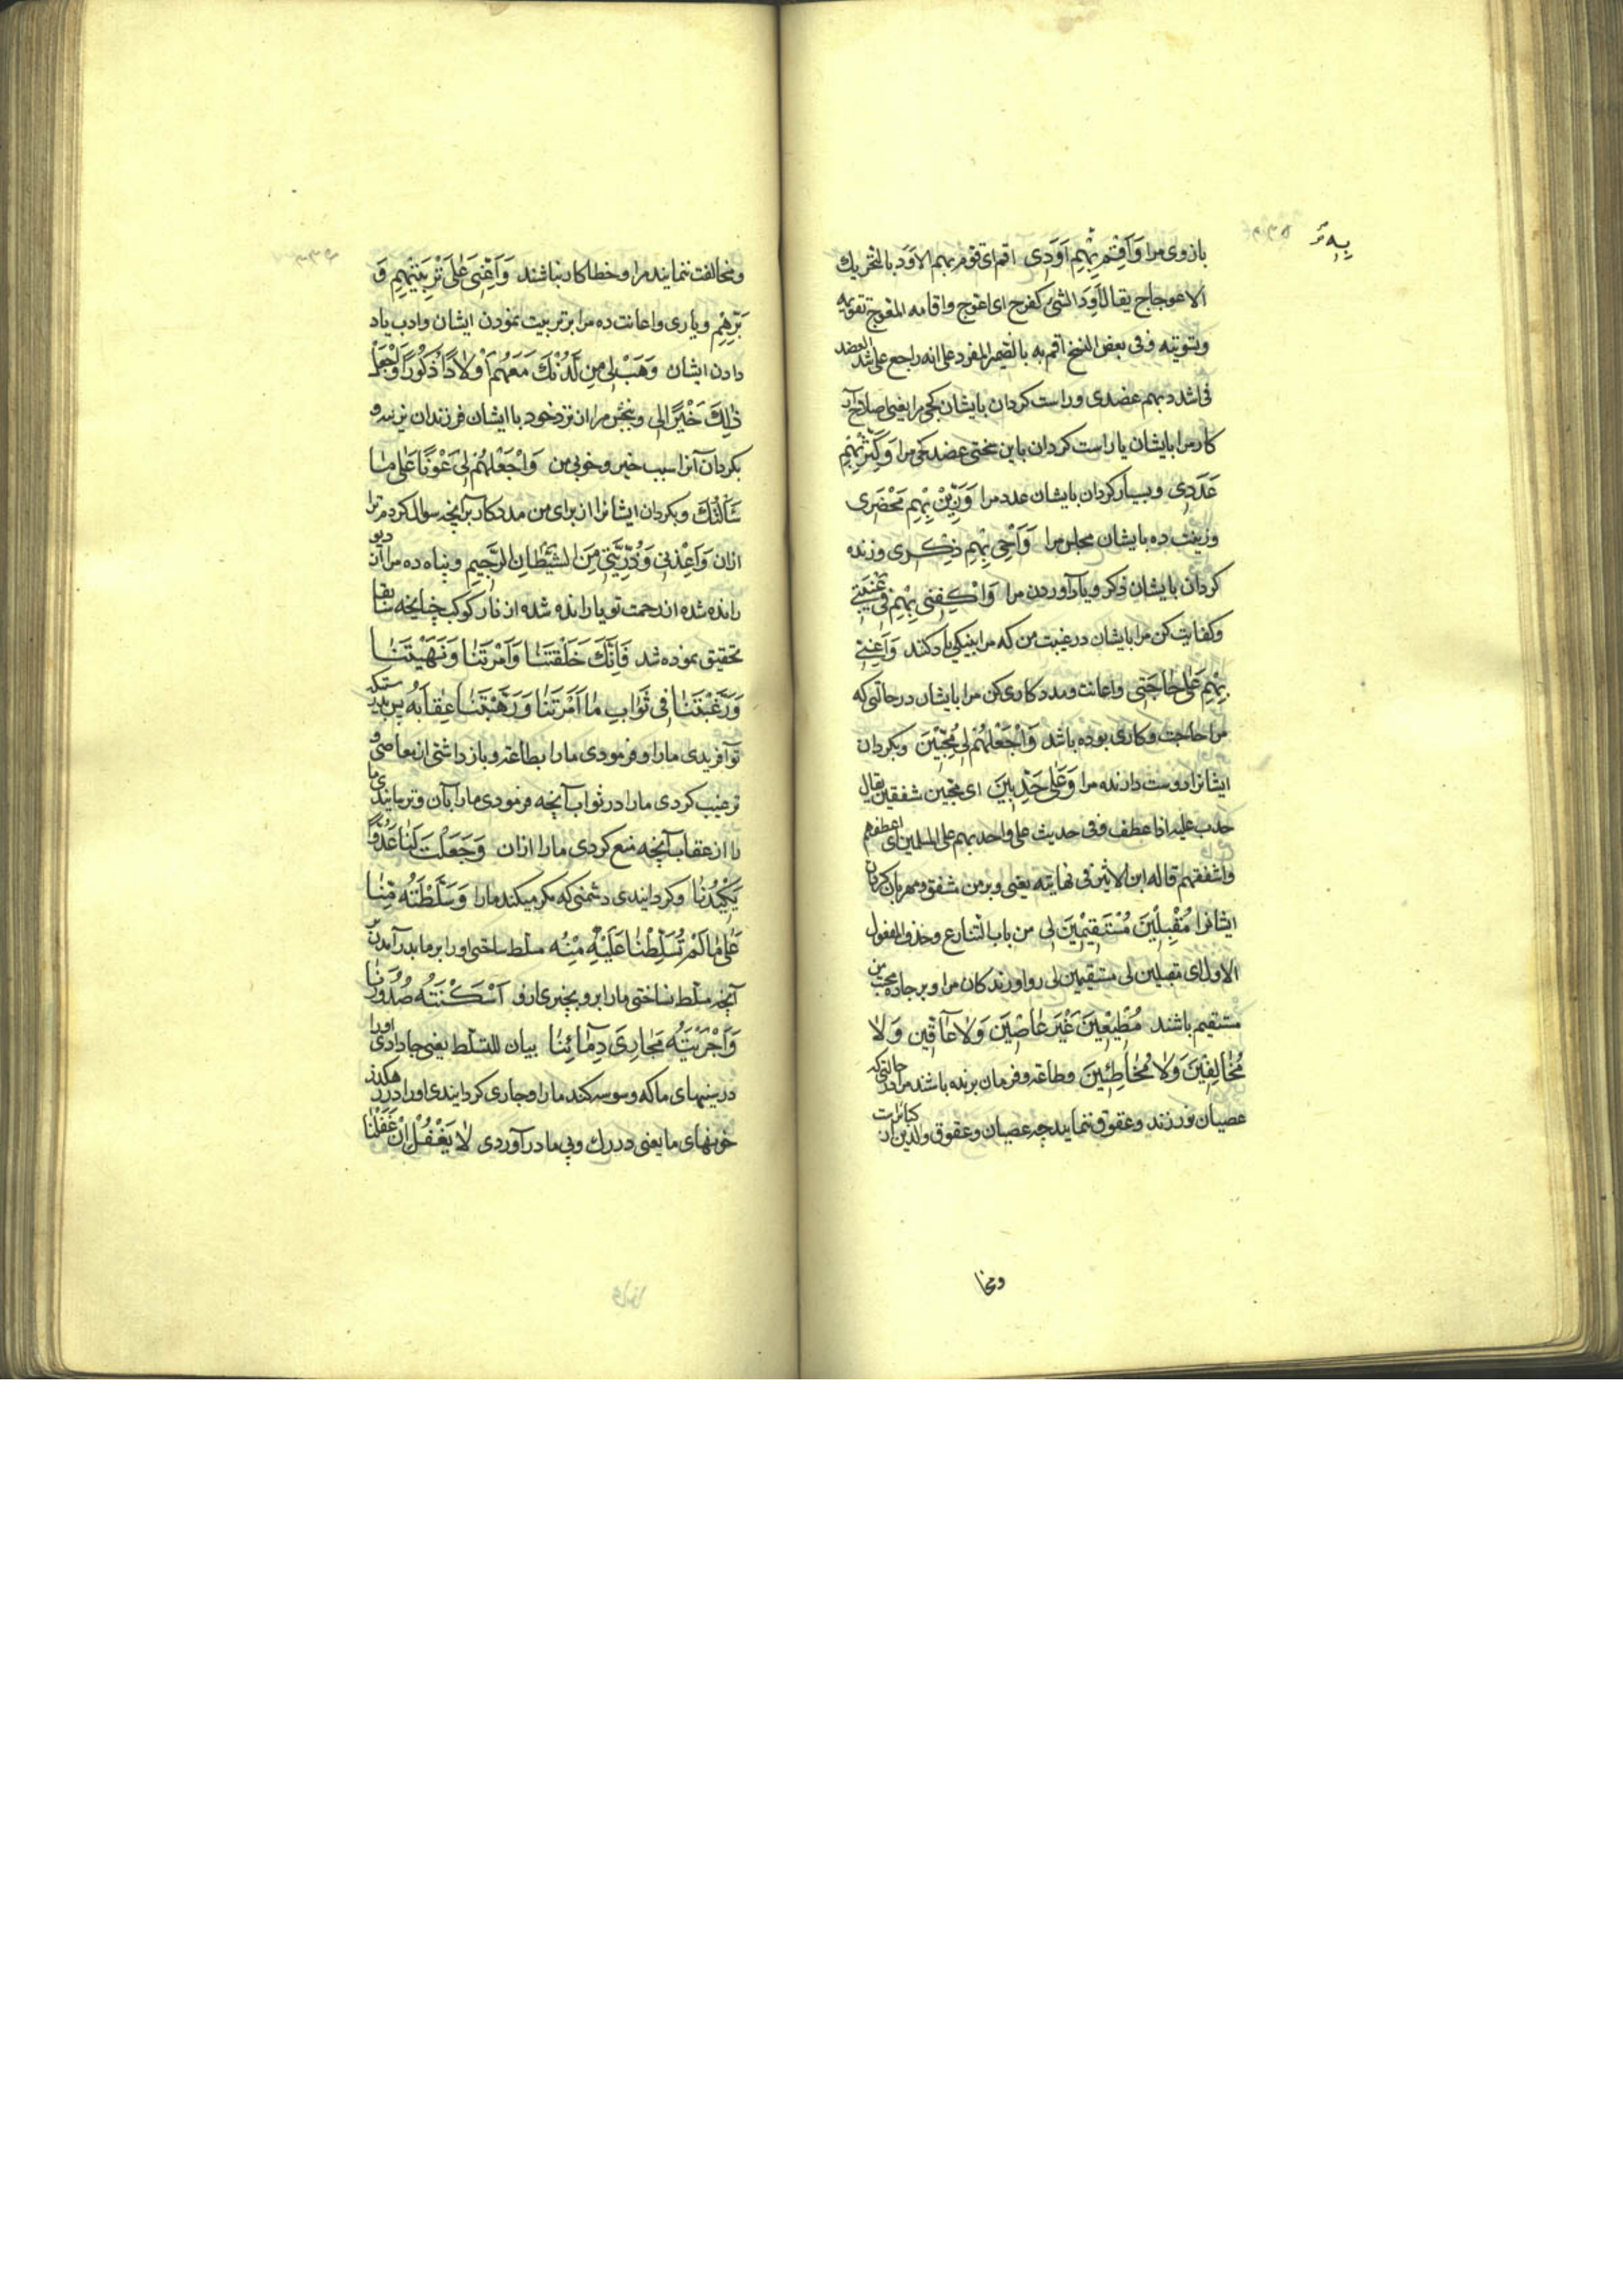 بازوی مرا وَاَقِمْ بِهِمْ اَوَدی اقم ای قوّم بهم الاَوَد بالتحریك
الاعوجاج یقال اَوِدَ الشئ کفرح ای اعوج واقامه المعوج تقویمه
وتسویته وفی بعض النسخ اقم به بالضمیر المفرد علی انه راجع علی شد العضد
فی اشدد بهم عضدی وراست کردان بایشان کجی مرا یعنی اصلاح آر
کار مرا بایشان یا راست کردان باین سختی عضد کجی مرا وَکَثِّرْ بِهِمْ
عَدَدی وبسیار کردان بایشان عدد مرا وَزَیِّنْ بِهِمْ مَحْضَری
وزینت ده بایشان مجلس مرا وَاَحْیِ بِهِمْ ذِکْری وزنده
کردان بایشان ذکر ویاد آوردن مرا وَاکْفِنی بِهِمْ فی غَیْبَتی
وکفایت کن مرا بایشان در غیبت من که مرا بنیکی یاد کنند وَاَعِنّی
بِهِمْ عَلیٰ حاجَتی واعانت ومدد کاری کن مرا بایشان در حالتی که
مرا حاجت وکاری بوده باشد وَاجْعَلْهُمْ لی مُحِبّینَ وبکردان
ایشانرا دوست دارنده مرا وَعَلَیَّ حَدِبینَ ای محبین شفقین یقال
حدب علیه اذا عطف وفی حدیث علی واحدبهم علی المسلمین ای اعطفهم
واشفقهم قاله ابن الاثیر فی نهایته یعنی وبر من شفق ومهربان کردان
ایشانرا مُقْبِلینَ مُسْتَقیمینَ لی من باب التنازع وحذف المفعول
الاول ای مقبلین لی مستقیمین لی رو آورندکان مرا وبر جاده محبت من
مستقیم باشند مُطیعینَ غَیْرَ عاصینَ وَلا عاقّینَ وَلا
مُخالِفینَ وَلا مُخاطِئینَ وطاعة وفرمان برنده باشند مرا در حالتی که
عصیان نورزند وعقوق ننمایند چه عصیان وعقوق والدین از کبائر است
ومخا
ومخالفت ننمایند مرا وخطا کار نباشند وَاَعِنّی عَلیٰ تَرْبِیَتِهِمْ وَ
بِرِّهِمْ ویاری واعانت ده مرا بر تربیت نمودن ایشان وادب یاد
دادن ایشان وَهَبْ لی مِنْ لَدُنْكَ مَعَهُمْ اَوْلاداً ذُکُوراً وَاجْعَلْ
ذٰلِكَ خَیْراً لی وببخش مرا از نزد خود با ایشان فرزندان نرینه و
بکردان آنرا سبب خیر وخوبی من وَاجْعَلْهُمْ لی عَوْناً عَلیٰ ما
سَأَلْتُكَ وبکردان ایشانرا از برای من مددکار بر آنچه سوال کردم ترا
ازان وَاَعِذْنی وَذُرِّیَّتی مِنَ الشَّیْطانِ الرَّجیمِ وپناه ده مرا از دیو
رانده شده از رحمت تو یا رانده شده از نار کوکب چنانچه سابقا
تحقیق نموده شد فَاِنَّكَ خَلَقْتَنا وَاَمَرْتَنا وَنَهَیْتَنا
وَرَغَّبْتَنا فی ثَوابِ ما اَمَرْتَنا وَرَهَّبْتَنا عِقابَهُ پس بدرستی که
تو آفریدی ما را وفرمودی ما را بطاعة وباز داشتی از معاصی و
ترغیب کردی ما را در ثواب آنچه فرمودی ما را بآن وترسانیدی ما
را از عقاب آنچه منع کردی ما را ازان وَجَعَلْتَ لَنا عَدُوّاً
یَکیدُنا وکردانیدی دشمنی که مکر میکند ما را وَسَلَّطْتَهُ مِنّا
عَلیٰ ما لَمْ تُسَلِّطْنا عَلَیْهِ مِنْهُ مسلط ساختی او را بر ما
آنچه مسلط نساختی ما را برو بچیزی ازو اَسْکَنْتَهُ صُدُورَنا
وَاَجْرَیْتَهُ مَجارِیَ دِمائِنا بیان للتسلط یعنی جا دادی او را
در سینهای ما که وسوسه کند ما را وجاری کردانیدی او را در
خونهای ما یعنی در رك وپی ما در آوردی لا یَغْفُلُ اِنْ غَفَلْنا